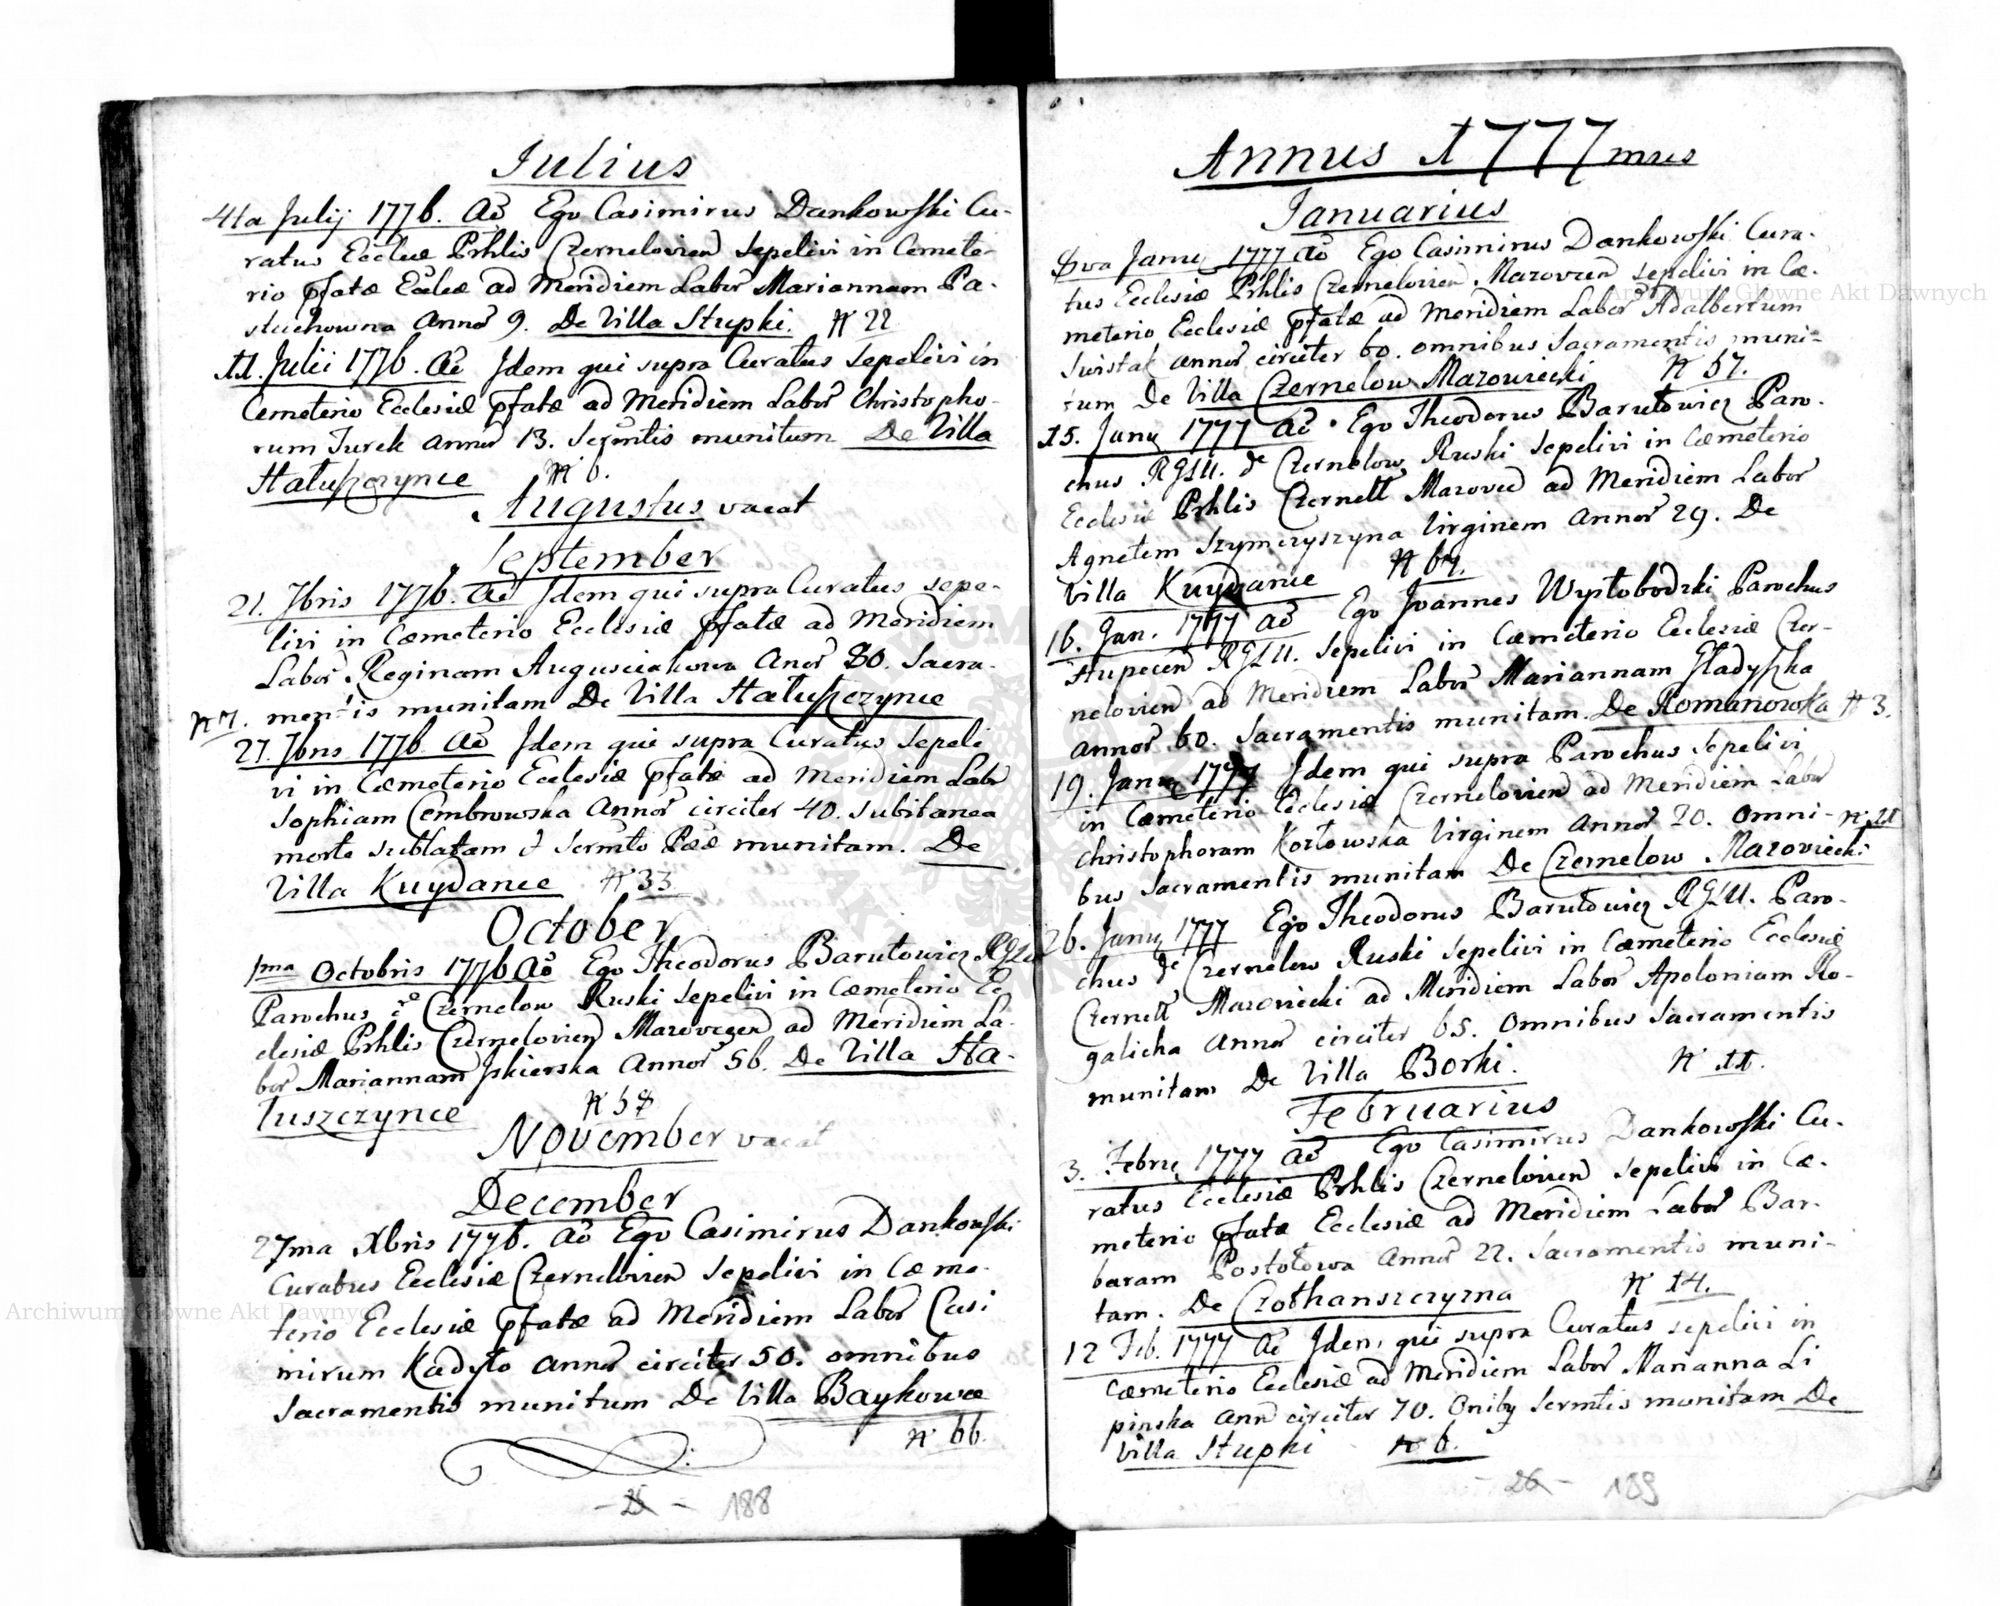 Iulius
4ta Julij 1776. Aō Ego Casimirus Dankowski Cu-
ratus Eccleæ Prhlis Czernelovien Sepelivi in Cemete-
rio pfatæ Ecclæ ad Meridiem Labor Mariannam Pa-
stuchowna Annor 9. De Villa Stupki. N 22
11. Julii 1776. Aō Jdem qui supra Curatus Sepelivi in
Cemeterio Ecclesiæ pfatæ ad Meridiem Labor Christopho-
rum Turek annor 13. Scrmtis munitum De Villa
Hałuszczynce N 6.
Augustus vacat
September
21. 7bris 1776. Aō Jdem qui supra Curatus sepe-
livi in Cæmeterio Ecclesiæ pfatæ ad Meridiem
Labor Reginam Augusciakowa Anor 80. Sacra-
N 7. mentis munitam De Villa Hałuszczynce
27. 7bris 1776 Aō Jdem qui supra Curatus Sepeli
vi in Cæmeterio Ecclesiæ pfatæ ad Meridiem Labor
Sophiam Cembrowska Annor circiter 40. Subitanea
morte sublatam munitam. De
Villa Kuydance N 33
October
1ma Octobris 1776 Aō Ego Theodorus Barutowicz RGLU
Parochus Czernelow Ruski Sepelivi in Cæmeterio Ec
clesiæ Prhlis Czernelovien Mazovecen ad Meridiem La-
bor Mariannam Annor 56. De Villa Ha-
łuszczynce
November vacat
December
27ma Xbris 1776. Aō Ego Casimirus Dankowski
Curatus Ecclesiæ Czernelovien Sepelivi in Cæme-
terio Ecclesiæ pfatæ ad Meridiem Labor Casi
mirum Kadyło annor circiter 50. omnibus
Sacramentis munitum De Villa Baykowce
N 66.
188
Annus 1777mus
Ianuarius
8va Janu 1777 Aō Ego Casimirus Dankowski Cura-
tus Ecclesiæ Prhlis Czernelovien Mazovien sepelivi in Cæ-
meterio Ecclesiæ pfatæ ad Meridiem Labor Adalbertum
annor circiter 60. omnibus Sacramentis muni-
tum De Villa Czernelow Mazowiecki N 57.
15. Janu 1777 Aō Ego Theodorus Barutowicz Paro-
chus RGLU. de Czernelow Ruski Sepelivi in Cæmeterio
Ecclesiæ Prhlis Czernell Mazovec ad Meridiem Labor
Agnetem Szymczyszyna Virginem Annor 29. De
Villa Kuydance N 67.
16. Jan. 1777 Aō Ego Joannes Wysłobodzki Parochus
Stupecen RGLU. Sepelivi in Cæmeterio Ecclesiæ Czer-
nelovien ad Meridiem Labor Mariannam Gładyszka
annor 60. Sacramentis munitam. De Romanowka N 3.
19. Janu 1777 Jdem qui supra Parochus Sepelivi
in Cæmeterio Ecclesiæ Czernelovien ad Meridiem Labor
Christophoram Kozłowska Virginem Annor 20. Omni- N 21
bus Sacramentis munitam De Czernelow Mazoviecki
26. Janu 1777 Ego Theodorus Barutowicz RGLU. Paro-
chus de Czernelow Ruski Sepelivi in Cæmeterio Ecclesiæ
Czernell Mazoviecki ad Meridiem Labor Apoloniam Ro-
galicha Annor circiter 65. Omnibus Sacramentis
munitam De Villa Borki. N 11.
Februarius
3. Febru 1777 Aō Ego Casimirus Dankowski Cu-
ratus Ecclesiæ Prhlis Czernelovien Sepelivi in Cæ-
meterio pfatæ Ecclesiæ ad Meridiem Labor Bar-
baram Postołowa Annor 22. Sacramentis muni-
tam. De Czothanszczyzna N 14.
12 Feb. 1777 Aō Jdem qui supra Curatus sepelivi in
Cæmeterio Ecclesiæ ad Meridiem Labor Marianna Li
pinska Ann circiter 70. Onibg Scrmtis munitam De
Villa Stupki N 6.
26 189
Archiwum Główne Akt Dawnych
Archiwum Główne Akt Dawnych